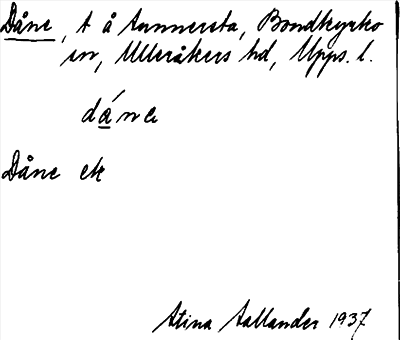 Dåne, t å Sunnersta, Bondkyrko
sn, Ulleråkers hd, Upps. l.
dánɛ
Dåne ek
Stina Sallander 1937